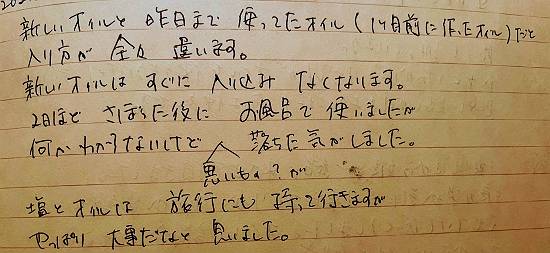 新しいオイルと昨日まで使ってたオイル(1ヶ月前に作ったオイル)だと
入り方が全々違います。
新しいオイルはすぐに入り込みなくなります。
2日ほどさぼった後にお風呂で使いましたが
何かわからないけど落ちた気がしました。
悪いもの?が
塩とオイルは旅行にも持って行きますが
やっぱり大事だなと思いました。